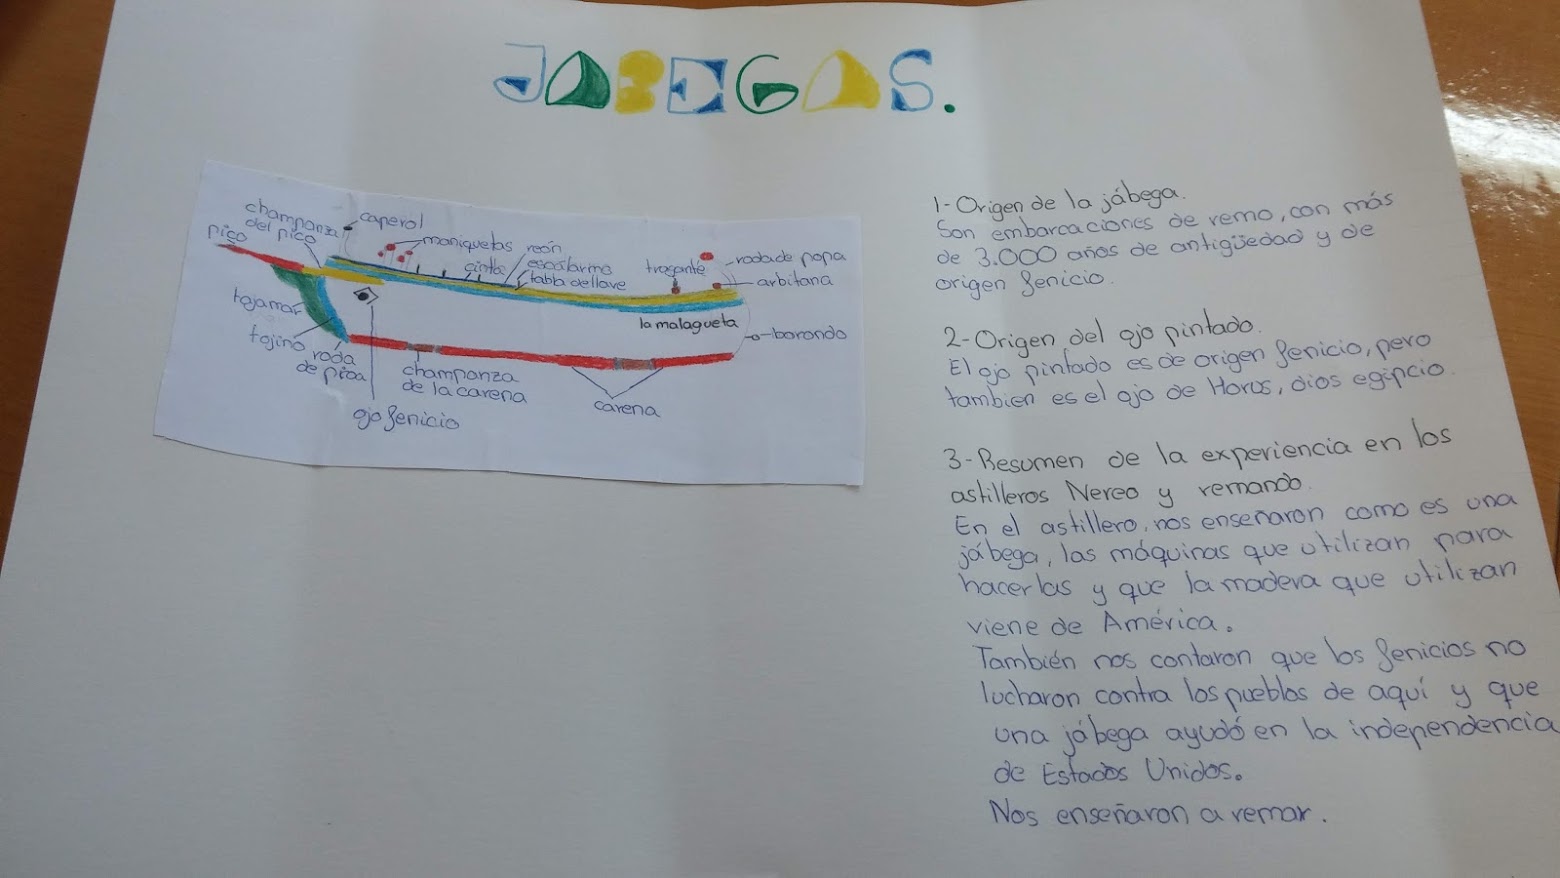 JABEGAS.
champanza
del pico
caperol
pico
maniquetas
reón
cinta
escalarmo
tabla dellave
trasante
roda de popa
arbitana
tajamar
la malagueta
borondo
tajino
roda
de proa
champanza
de la carena
carena
ojo fenicio
1-Origen de la jábega.
Son embarcaciones de remo, con más
de 3.000 años de antigüedad y de
origen fenicio.
2-Origen del ojo pintado.
El ojo pintado es de origen fenicio, pero
tambien es el ojo de Horus, dios egipcio.
3-Resumen de la experiencia en los
astilleros Nereo y remando.
En el astillero, nos enseñaron como es una
jábega, las máquinas que utilizan para
hacerlas y que la madera que utilizan
viene de América.
También nos contaron que los fenicios no
lucharon contra los pueblos de aquí y que
una jábega ayudó en la independencia
de Estados Unidos.
Nos enseñaron a remar.